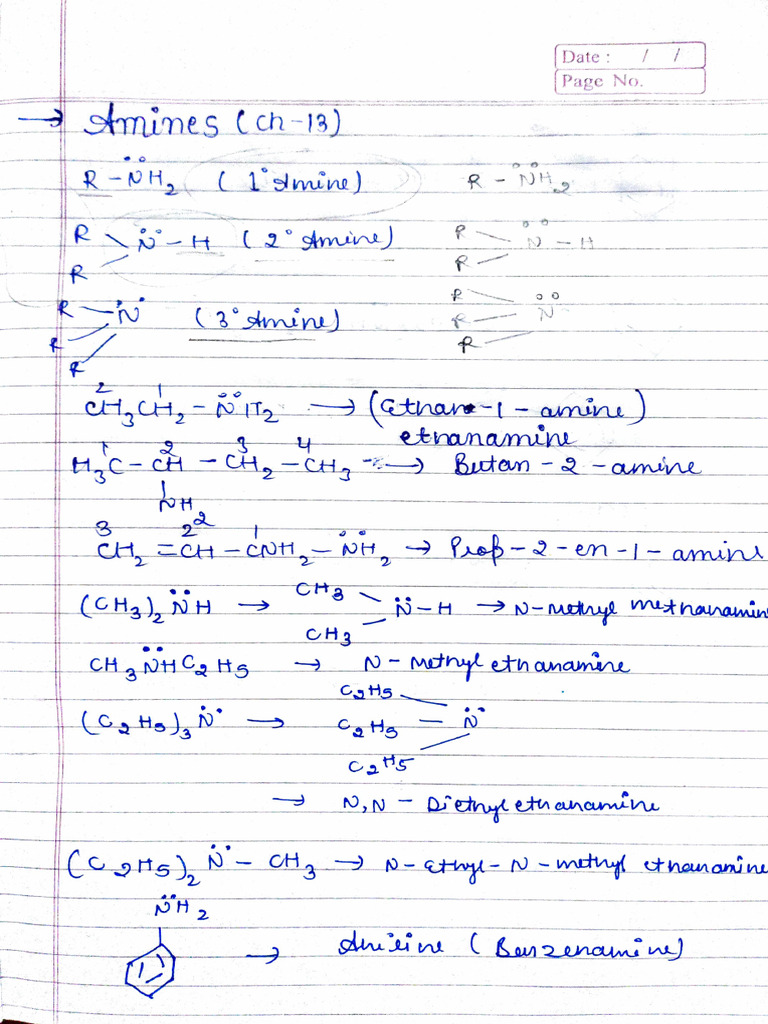 Date : / /
Page No.
→ Amines (Ch-13)
R - N̈H₂ (1° Amine) R - N̈H₂
R
N̈ - H (2° Amine)
R
R
N̈ - H
R
R
R N̈ (3° Amine)
R
R
R N̈
R
2 1
CH₃CH₂ - N̈H₂ → (Ethan-1-amine)
ethanamine
1 2 3 4
H₃C - CH - CH₂ - CH₃ → Butan-2-amine
NH₂
3 2 1
CH₂ = CH - CNH₂ - N̈H₂ → Prop-2-en-1-amine
(CH₃)₂ N̈H → CH₃ CH₃ N̈-H → N-methyl methanamin
CH₃N̈HC₂H₅ → N-methyl ethanamine
(C₂H₅)₃ N̈ → C₂H₅ C₂H₅ C₂H₅ N̈
→ N,N - Diethyl ethanamine
(C₂H₅)₂ N̈ - CH₃ → N-Ethyl-N-methyl ethanamine
N̈H₂
→ Aniline (Benzenamine)